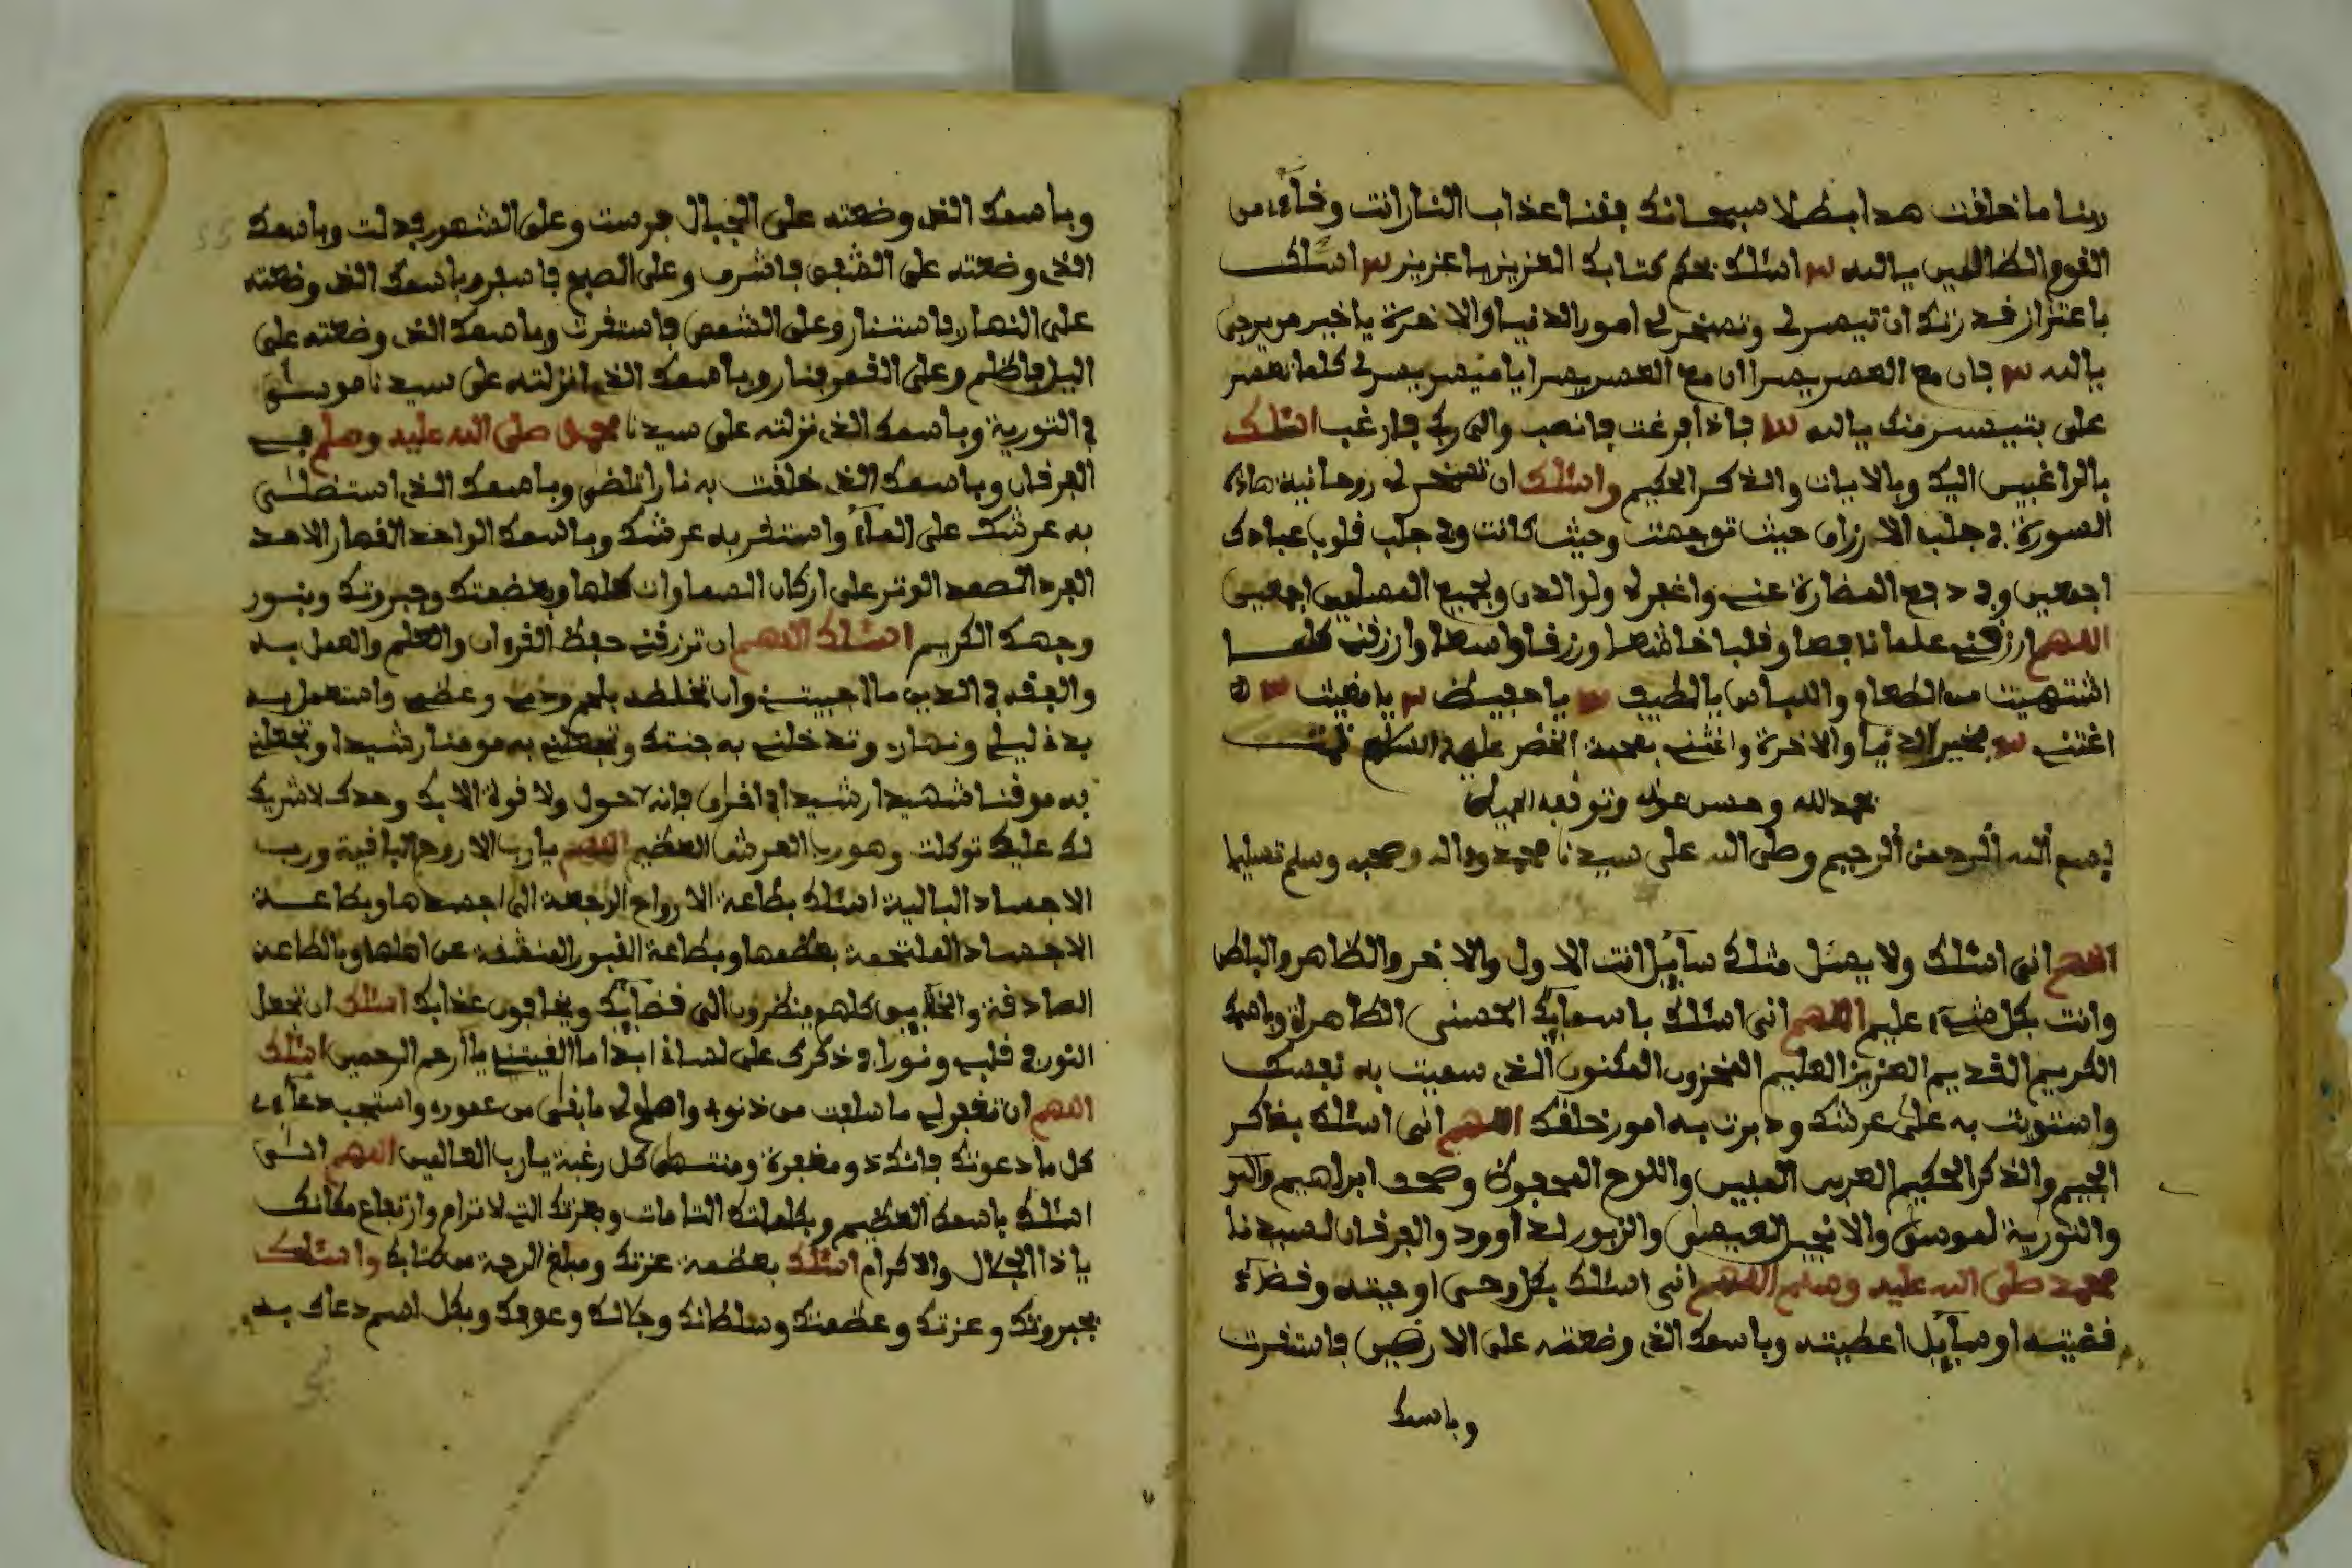 ربنا ما خلقت هدا بطلا سبحانك فقنا عذاب النار انت وقاءي من
القوم الظالمين يا الله اسئلك بحكم كتابك العزيز يا عزيز اسئلك
باعتزاز قدرتك ان تيسر لي وتسخر لي امور الدنيا والاخرة يا خير من يرجى
يا الله فان مع العسر يسرا ان مع العسر يسرا يا ميسر يسر لي كلما تعسر
على بتيسر منك يا الله فاذا فرغت فانصب والى ربك فارغب اسئلك
بالراغبين اليك وبالايات والذكر الحكيم واسئلك ان تسخر لي روحانية هاذه
السورة في جلب الارزاق حيث توجهت وحيث كانت وفي جلب قلوب عبادك
اجمعين وفي دفع المضارة عني واغفر لي ولوالدي وبجميع المسلمين اجمعين
اللهم ارزقني علما نافعا وقلبا خاشعا ورزقا واسعا وارزقني كلما
اشتهيت من الطعام واللباس يا لطيف يا حفيظ يا مغيث
اغثني بخير الدنيا والاخرة واغثني بعصمة الخضر عليه السلام تمت
بحمد الله وحسن عونه وتوفيقه
بسم الله الرحمن الرحيم وصلى الله على سيدنا محمد وءاله وصحبه وسلم تسليما
اللهم اني اسئلك ولا يسئل مثلك سايل انت الاول والاخر والظاهر والباطن
وانت بكل شيء عليم اللهم اني اسئلك باسمايك الحسنى الطاهرة وباسمك
الكريم القديم العزيز العليم المخزون المكنون الذي سميت به نفسك
واستويت به على عرشك ودبرت به امور خلقك اللهم اني اسئلك بفاكر
الجيم والذكر الحكيم العربي المبين واللوح المحفوظ وصحف ابراهيم
والتورية لموسى والانجيل لعيسى والزبور لداوود والفرقان لسيدنا
محمد صلى الله عليه وسلم اللهم اني اسئلك بكل وحي اوحيته وقضاء
قضيته او سايل اعطيته وباسمك الذي وضعته على الارضين فاستقرت
وباسمك
وباسمك الذي وضعته على الجبال فرست وعلى الشعور فدلت وباسمك
الذي وضعته على الشفق فاشرق وعلى الصبح فاسفر وباسمك الذي وضعته
على النهار فاستنار وعلى الشمس فاستقرت وباسمك الذي وضعته على
اليل فاظلم وعلى القمر فنار وباسمك الذي انزلته على سيدنا موسى
في التورية وباسمك الذي نزلته على سيدنا محمد صلى الله عليه وسلم في
الفرقان وباسمك الذي خلقت به نارا تلضى وباسمك الذي استضلى
به عرشك على الماء واستقر به عرشك وباسمك الواحد القهار الاحد
الفرد الصمد الوتر على اركان السماوات كلها وبعضمتك وجبروتك وبنور
وجهك الكريم اسئلك اللهم ان ترزقني حفظ القرءان والعلم والعمل به
والفقه في الدين ما احييتني وان تخلطه بلحم ودمي وعظمي واستعمل به
بدني ليلي ونهاري وتدخلني به جنتك وتجعلني به مومنا رشيدا وتجعلني
به موقنا شهيدا رشيدا في اخراي فإنه لا حول ولا قوة الا بك وحدك لا شريك
لك عليك توكلت وهو رب العرش العظيم اللهم يا رب الاروح الباقية ورب
الاجساد البالية اسئلك بطاعة الارواح الرجعة الى اجسدها وبطاعة
الاجساد الملتحمة بعظمها وبطاعة القبور المنشقة عن اهلها وبالطاعة
الصادقة والخلايق كلهم ينظرون الى قضايك ويخافون عذابك اسئلك ان تجعل
النور في قلبي ونورا وذكرك على لساني ابدا ما ابقيتني يا ارحم الرحمين اسئلك
اللهم ان تغفر لي ما سلفت من ذنوبي واصلح لي ما بقى من عمري واستجب دعاءي
كل ما دعوتك فانك ذو مغفرة ومنتهى كل رغبة يا رب العالمين اللهم اني
اسئلك باسمك العظيم وبكلماتك التامات وبعزتك التي لا ترام وارتفاع مكانك
يا ذا الجلال والاكرام اسئلك بعظمة عزتك ومبلغ الرحمة من كتابك واسئلك
بجبروتك وعزتك وعظمتك وسلطانك وجلالك وبكل اسم دعاك به